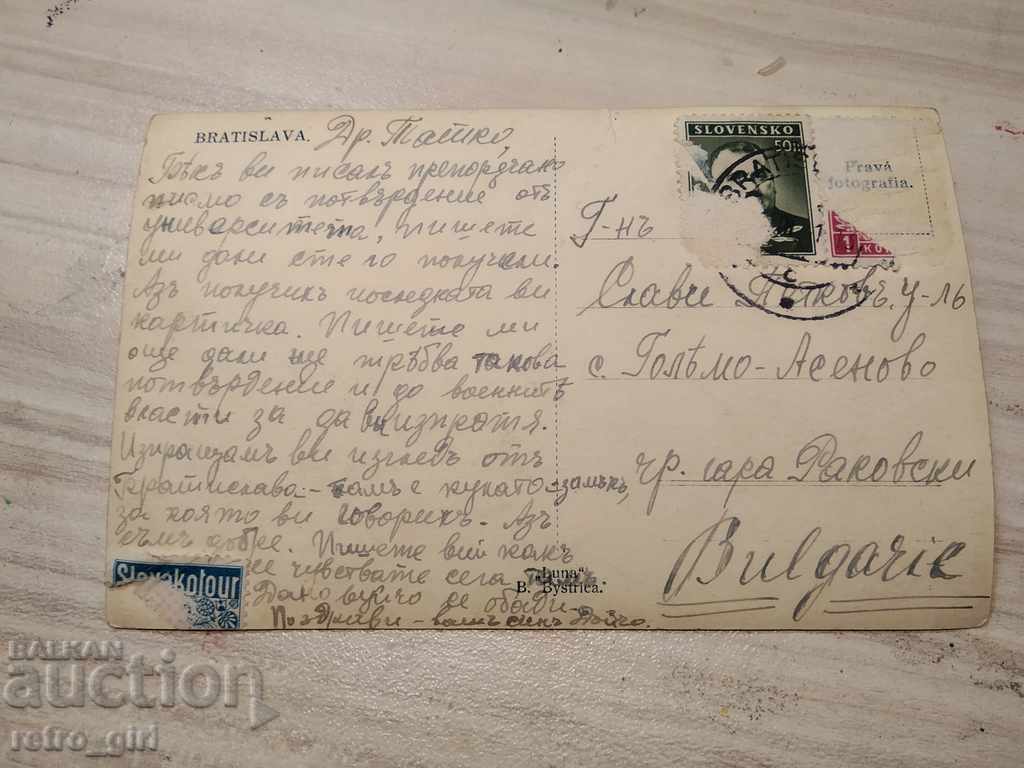 BRATISLAVA. Др. Татко,
Бѣхъ ви писалъ препорѫчано
писмо съ потвърдение отъ
университета, пишете
ми дали сте го получили.
Азъ получихъ последната ви
картичка. Пишете ми
още дали ще трѣбва такова
потвърдение и до военнитѣ
власти за да ви изпратя.
Изпращамъ ви изгледъ отъ
Братислава - тамъ е кулата-замъкъ,
за която ви говорихъ. Азъ
съмъ добре. Пишете вий какъ
се чувствате сега
Дано вуйчо се обади.
Поздрави - вашъ синъ Дойчо.
Slovakotour
"Luna"
B. Bystrica.
SLOVENSKO
50h
BRATISL
Pravá
fotografia.
1
Г-нъ
Слави Петковъ, у-ль
с. Голѣмо-Асеново
чр. гара Раковски
Bulgarie
BALKAN
auction
retro_girl